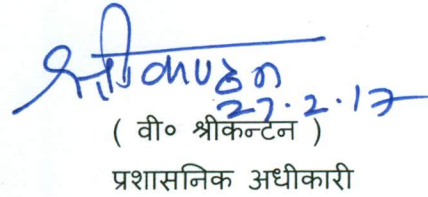 श्रीकण्ठन
27.2.17
( वी० श्रीकन्टेन )
प्रशासनिक अधीकारी